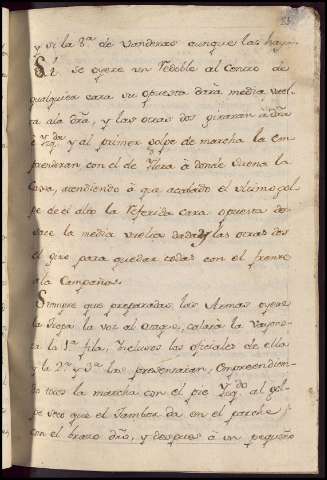 y si la 8ª de vanderas aunque las hay.
Si se oyere un Redoble al Centro de
qualquiera cara su opuesta dará media vuel-
ta a la dra, y las otras dos giraran á dra
é yzqda y al primer golpe de marcha la em-
prenderan con el de á donde suena la
Caxa, atendiendo á que acabado el ultimo gol-
pe de el alto la Referida cara opuesta de-
sace la media vuelta dada y las otras dos
el giro para quedar todas con el frente
a la Campaña.
Siempre que preparadas las Armas oyere
la tropa la voz al ataque, calará la vayone-
ta la 1ª fila, Inclusos los oficiales de ella
y la 2ª y 3ª las presentarán, Emprendien-
do todos la marcha con el pie yzqdo al gol-
pe seco que el Tambor da en el parche
con el brazo dro, y despues á un pequeño